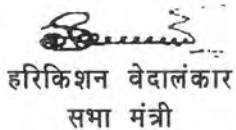 हरिकिशन वेदालंकार
सभा मंत्री